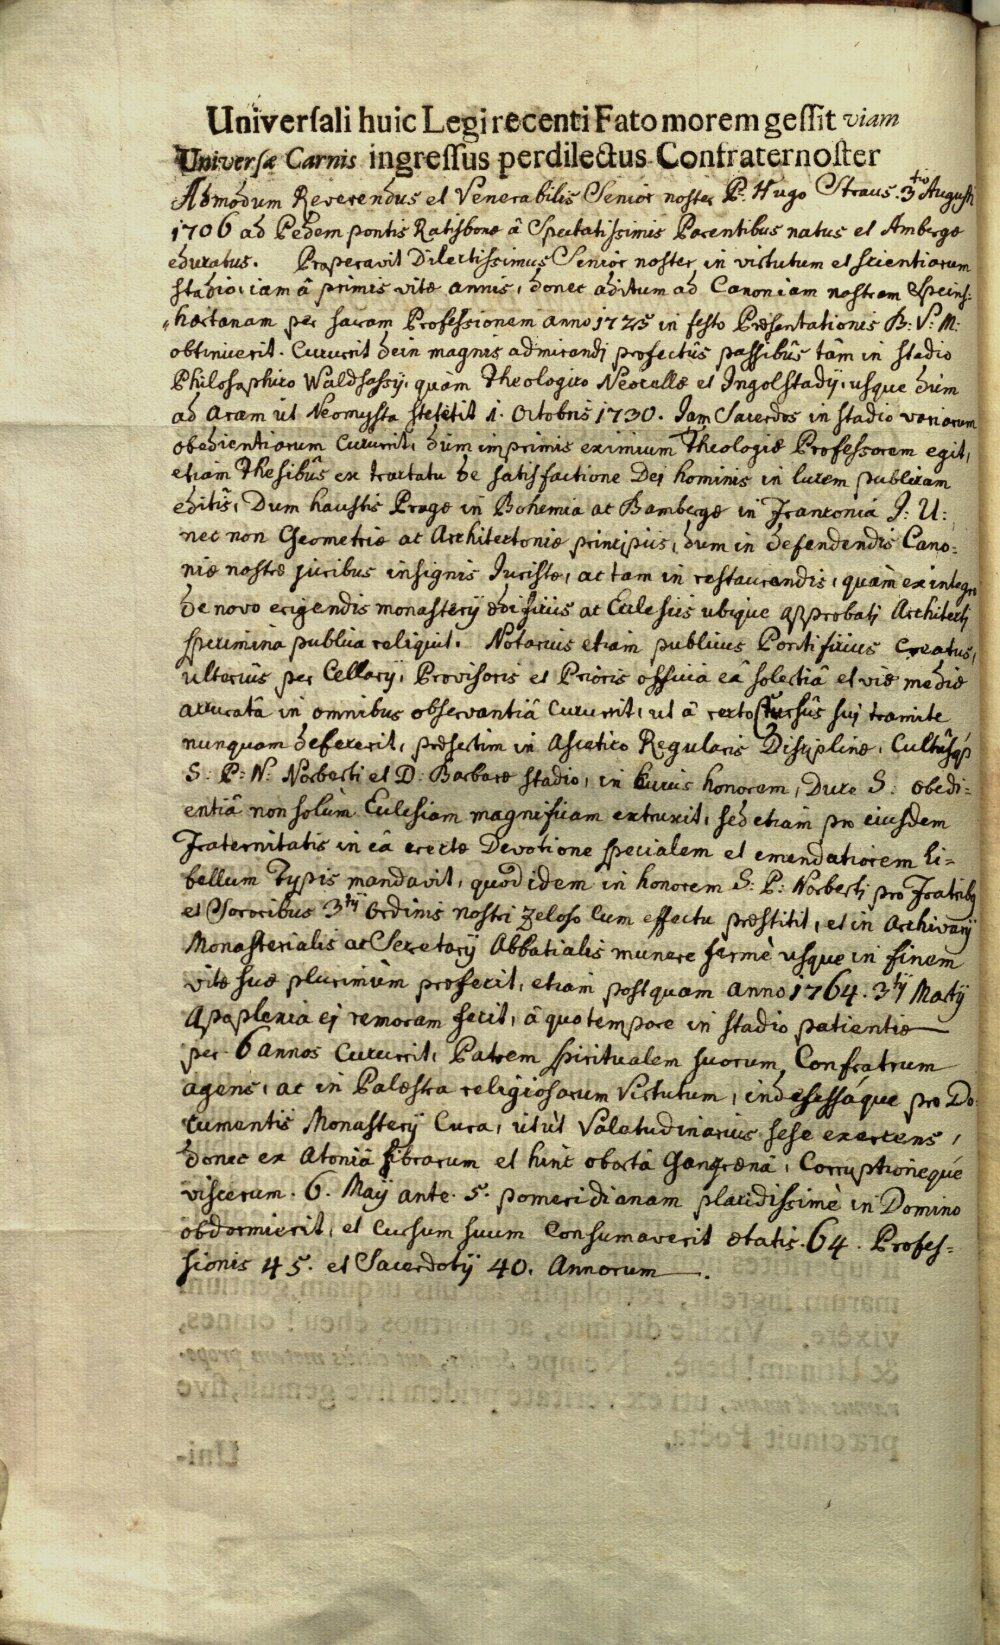 Universali huic Legi recenti Fato morem gessit viam
Universæ Carnis ingressus perdilectus Confraternoster
Admodum Reverendus et Venerabilis Senior noster P. Hugo Straus. 3tio Augusti
1706 ad Pedem pontis Ratisbonæ â Spectatissimis Parentibus natus et Ambergæ
educatus. Properavit Dilectissimus Senior noster in virtutum et scientiarum
stadio, iam â primis vitæ annis, donec aditum ad Canoniam nostram Speins-
hartanam per sacram Professionem anno 1725 in festo Præsentationis B: V: M:
obtinuerit. Cucurrit dein magnis admirandi profectûs passibûs tâm in stadio
Philosophico Waldsassij, quàm Theologico Neocellæ et Ingolstadij, usque dùm
ad aram ut Neomysta stetetit 1. Octobris 1730. Iam Sacerdos in stadio variarum
obedientiarum Cucurrit, dùm imprimis eximium Theologiæ Professorem egit,
etiam Thesibûs ex tractatu de satisfactione Dei hominis in lucem publicam
editîs, Dum haustis Pragæ in Bohemia ac Bambergæ in Franconiâ J: U:
nec non Geometriæ ac Architectoniæ principiis, dum in defendendis Cano=
niæ nostræ juribus insignis Juristæ, ac tam in restaurandis, quàm ex integro
de novo erigendis monasterÿ ædificiis ac Ecclesiis ubique approbati Architecti
specimina publica reliquit. Notarius etiam publicus Pontificius Creatus,
ulteriûs per Cellarÿ, Provisoris et Prioris officia eâ solertiâ et viæ mediæ
accuratâ in omnibus observantiâ Cucurrit, ut â recto Cursûs sui tramite
nunquam defecerit, præsertim in Ascetico Regularis Disciplinæ, Cultûsq́
S: P: N: Norberti et D: Barbaræ stadio, in Cuius honorem, Duce S: obedi=
entiâ non solùm Ecclesiam magnificam extruxit, sed etiam pro eiusdem
Fraternitatis in eâ erectæ Devotione specialem et emendatiorem li=
bellum Typis mandavit, quod idem in honorem S: P: Norberti pro Fratribq
et Sororibus 3tÿ Ordinis nostri zeloso Cum effectu præstitit, et in Archivarÿ
Monasterialis ac Secretarÿ Abbatialis munere fermè usque in finem
vitæ suæ plurimùm profecit, etiam postquam anno 1764. 3tÿ Martÿ
Apoplexia ej remoram fecit, â quo tempore in stadio patientiæ
per 6 annos Cucurrit, Patrem spiritualem suorum Confratrum
agens, ac in Palæstra religiosarum Virtutum, indefessáque pro Do
cumentis Monasterÿ Cura, utùt Valetudinarius sese exercens,
donec ex Atoniâ fibrarum et hinc obortâ Gangrænâ, Corruptionequé
viscerum. 6. Maÿ ante 5. pomeridianam placidissimè in Domino
obdormierit, et Cursum suum Consumaverit ætatis 64. Profes=
sionis 45. et Sacerdotÿ 40. Annorum.